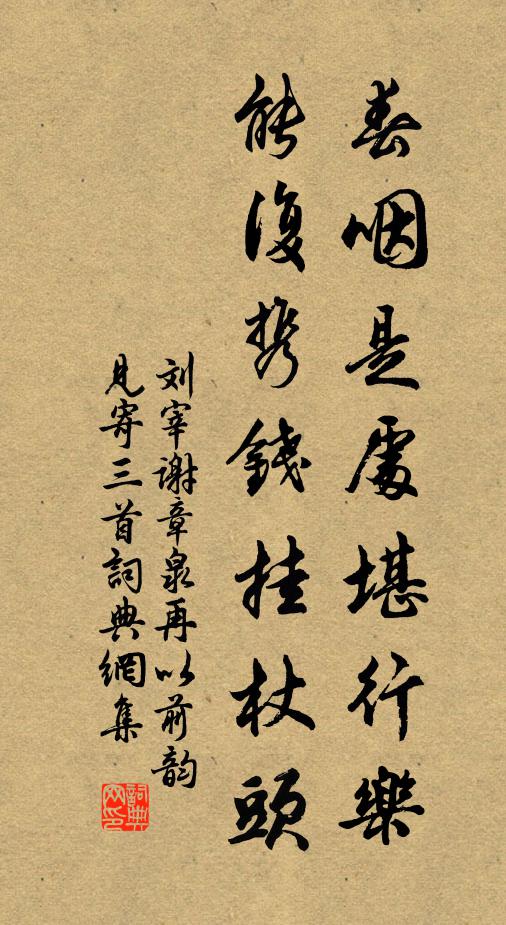 春咽是處堪行樂
能復携錢挂杖頭
刘宰謝章泉再以前韵
見寄三首詞典網集
詞典
网印